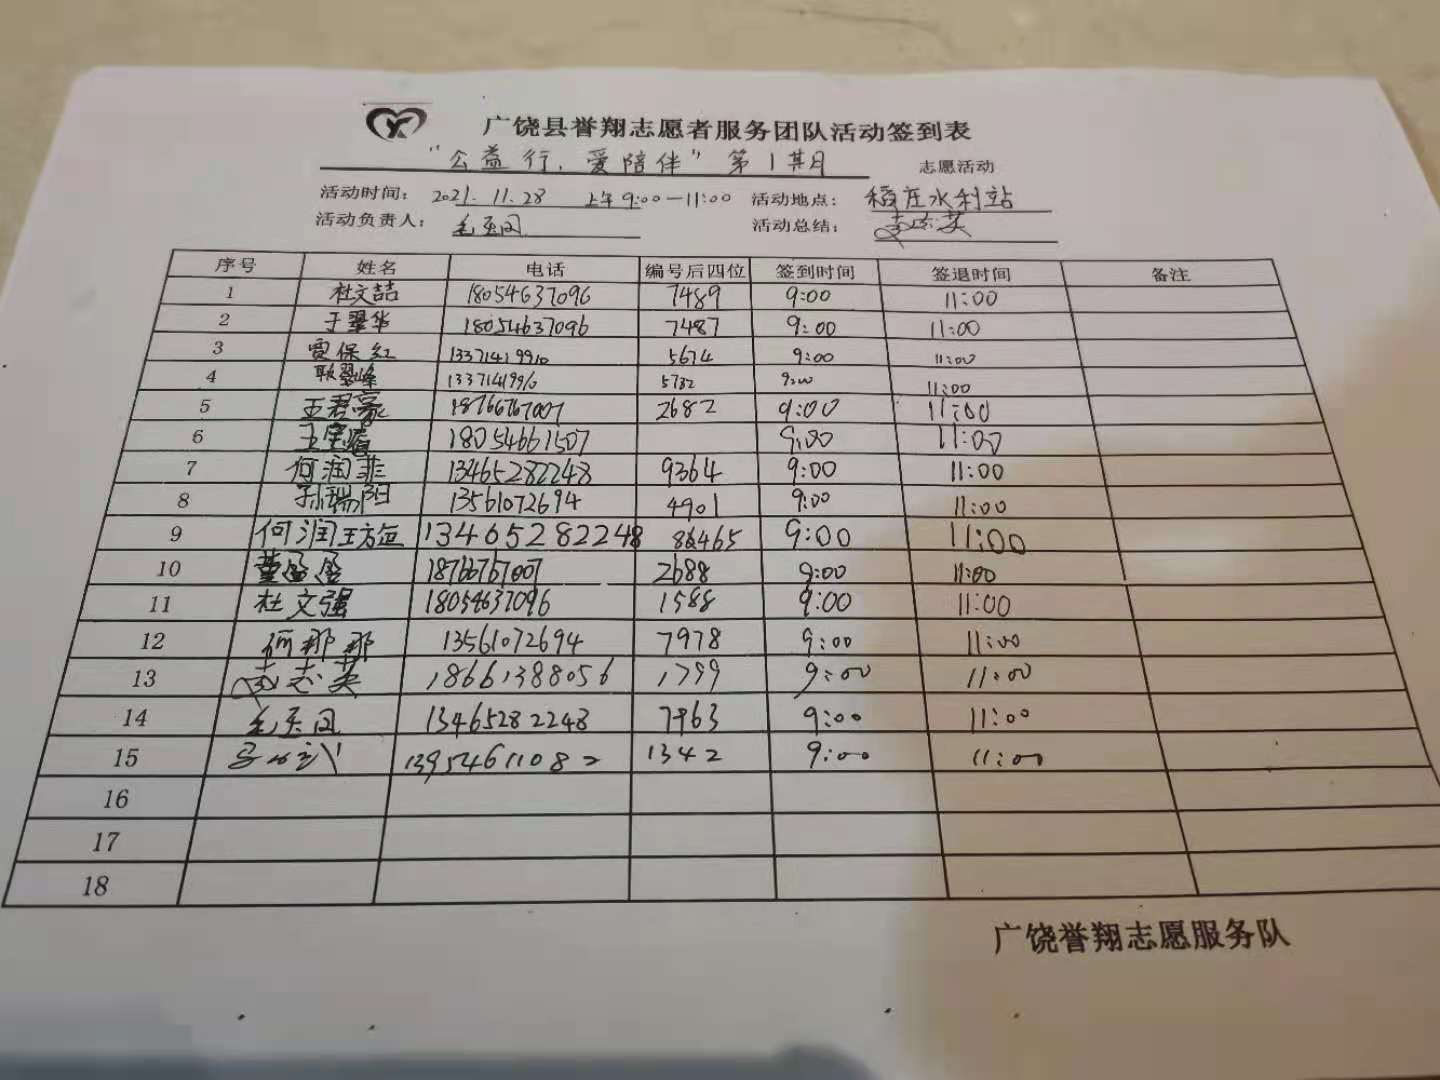 广饶县誉翔志愿者服务团队活动签到表
“公益行，爱陪伴”第1期 志愿活动
活动时间： 2021.11.28 上午9:00—11:00 活动地点： 稻庄水利站
活动负责人： 毛玉凤 活动总结： 志英
序号 姓名 电话 编号后四位 签到时间 签退时间 备注
1 杜文喆 18054637096 7489 9:00 11:00
2 于翠华 18054637096 7487 9:00 11:00
3 贾保红 13371419910 5674 9:00 11:00
4 耿翠峰 1337141996 5732 9:00 11:00
5 王君豪 18766767007 2682 9:00 11:00
6 18054661507 9:00 11:00
7 何润菲 13465282248 9364 9:00 11:00
8 孙瑞阳 13561072694 4901 9:00 11:00
9 何润 13465282248 9:00 11:00
10 董 18766767007 2688 9:00 11:00
11 杜文强 18054637096 1588 9:00 11:00
12 何那那 13561072694 7978 9:00 11:00
13 志英 18661388056 1799 9:00 11:00
14 毛玉凤 13465282248 7963 9:00 11:00
15 13954611082 1342 9:00 11:00
16
17
18
广饶誉翔志愿服务队